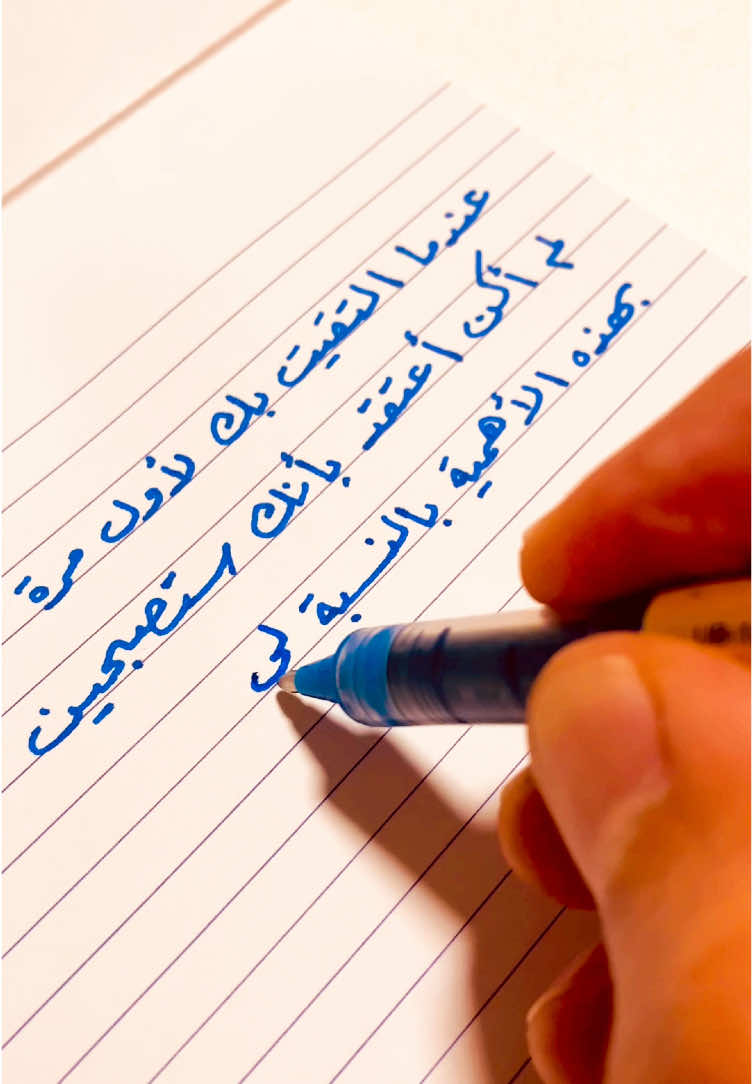 عندما التقيت بك لأول مرة
لم أكن أعتقد بأنك ستصبحين
بهذه الأهمية بالنسبة لي